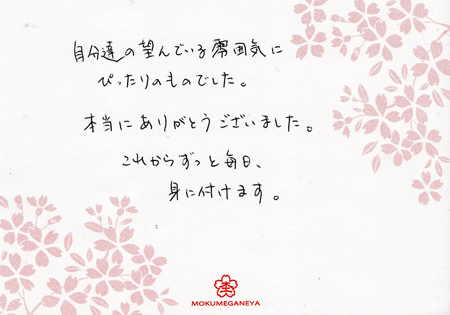 自分達の望んでいる雰囲気に
ぴったりのものでした。
本当にありがとうございました。
これからずっと毎日、
身に付けます。
杢
MOKUMEGANEYA